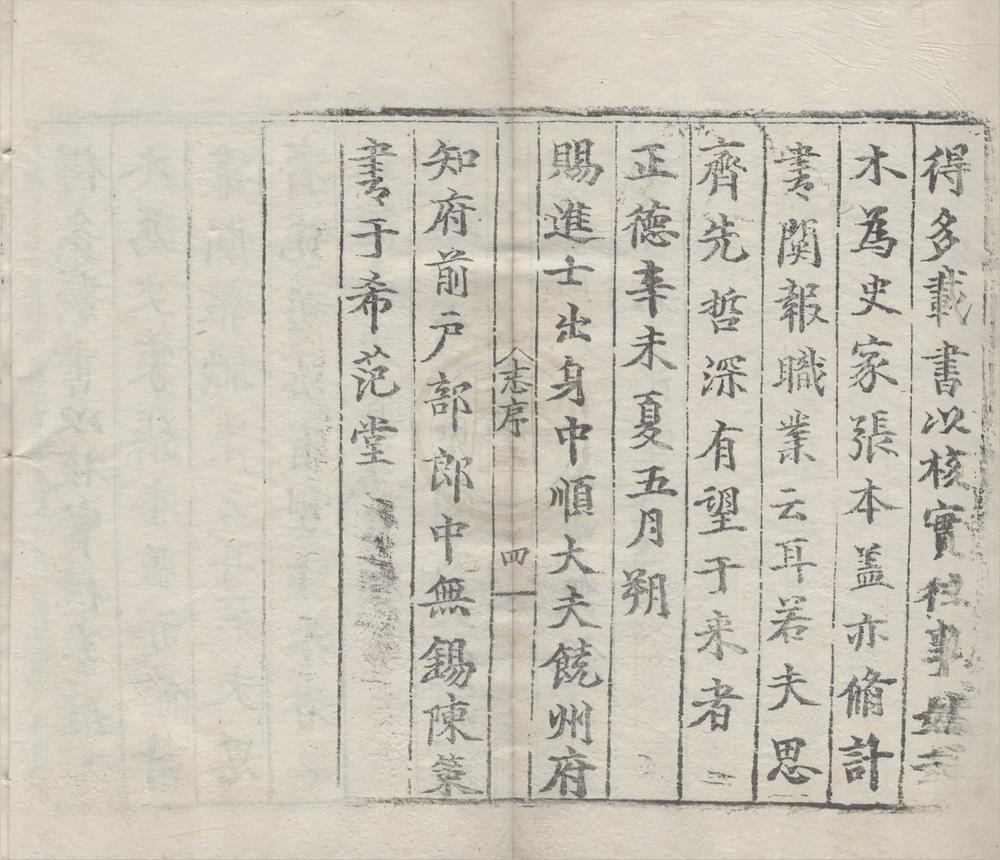 得多載書以核實往事
木為史家張本蓋亦脩計
書関報職業云耳若夫思
齊先哲深有望于来者
正德辛未夏五月朔
賜進士出身中順大夫饒州府
志序 四
知府前户部郎中無錫陳策
書于希范堂